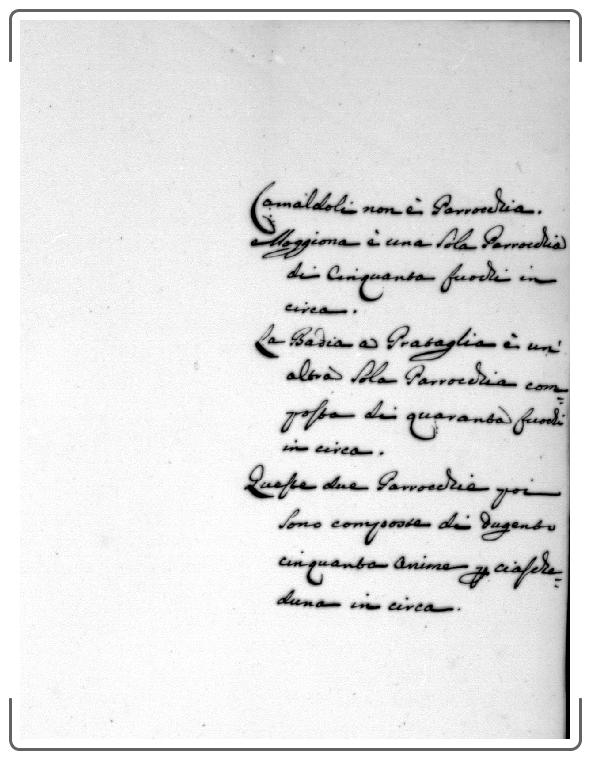 Camaldoli non è Parrocchia.
Moggiona è una Sola Parrocchia
di Cinquanta fuochi in
circa.
La Badia a Prataglia è un'
altra Sola Parrocchia com=
posta di quaranta fuochi
in circa.
Queste due Parrocchie poi
Sono composte di dugento
cinquanta Anime p ciasche=
duna in circa.